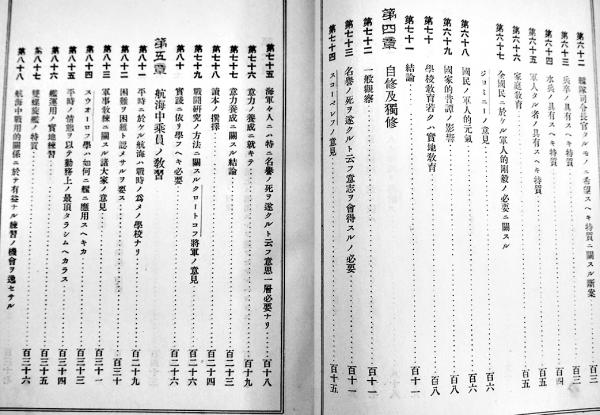 第六十二 艦隊司令長官タルモノニ希望スヘキ特質ニ關スル斷案 百三
第六十三 兵卒ノ具有スヘキ特質 百三
第六十四 水兵ノ具有スヘキ特質 百四
第六十五 軍人タル者ノ具有スヘキ特質 百五
第六十六 家庭教育 百五
第六十七 全國民ニ於ケル軍人的剛毅ノ必要ニ關スル
ジョミニーノ意見 百六
第六十八 國民ノ軍人的元氣 百六
第六十九 國家的昔譚ノ影響 百八
第七十 學校教育若クハ實地教育 百八
第七十一 結論 百十
第四章 自修及獨修
第七十二 一般觀察 百十一
第七十三 名譽ノ死ヲ遂クルト云フ意志ヲ會得スルノ必要 百十一
第七十四 スコーベレフノ意見 百十五
第七十五 海軍々人ニハ特ニ名譽ノ死ヲ遂クルト云フ意思一層必要ナリ 百十八
第七十六 意力ノ養成ニ就キテ 百十九
第七十七 意力養成ニ關スル結論 百二十三
第七十八 讀本ノ撰擇 百二十四
第七十九 戰鬪研究ノ方法ニ關スルクロートコフ將軍ノ意見 百二十六
第八十 實踐ニ依リ學フヘキ必要 百二十六
第五章 航海中乘員ノ教習
第八十一 平時ニ於ケル航海ハ戰時ノ爲メノ學校ナリ 百二十九
第八十二 困難ヲ困難ト認メサルヲ要ス 百三十
第八十三 軍事教練ニ關スル諸大家ノ意見 百三十一
第八十四 スウオーロフ學ハ如何ニ艦ニ應用スヘキカ 百三十三
第八十五 平時ノ情態ヲ以テ勤務上ノ最頂タラシムヘカラス 百三十四
第八十六 艦運用ノ實地練習 百三十五
第八十七 雙螺旋艦ノ特質 百三十五
第八十八 航海中戰用的關係ニ於テ有益ナル練習ノ機會ヲ逸セサル 百三十六